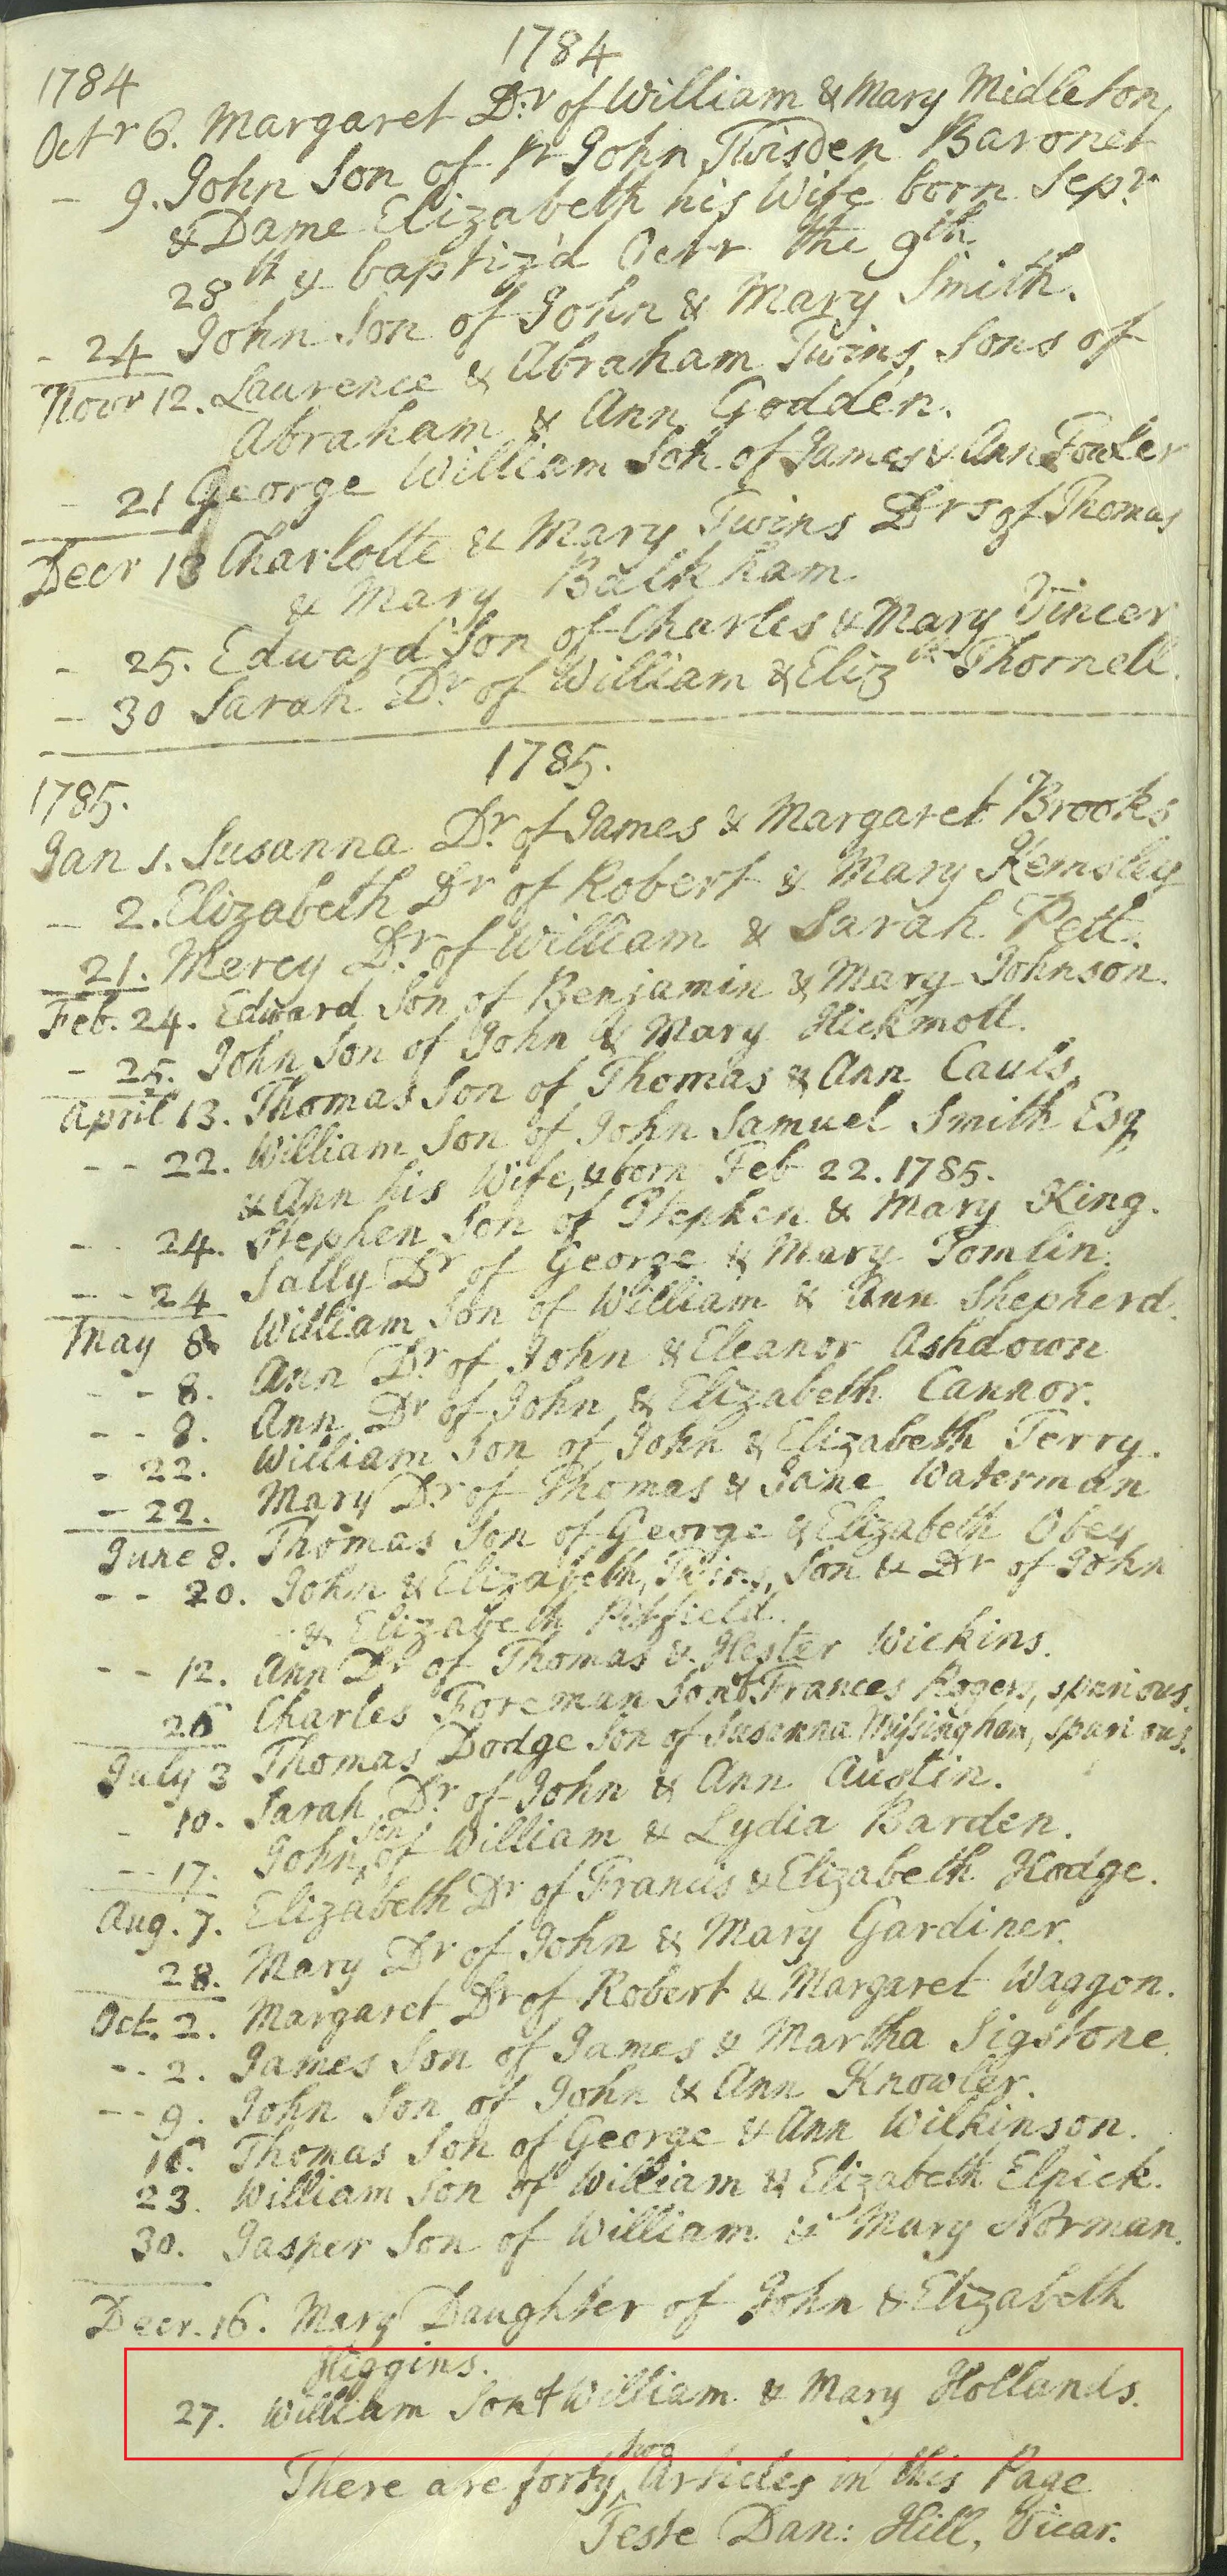 1784
1784
Octr 6. Margaret Dr. of William & Mary Midleton
- 9. John Son of Sr John Twisden Baronet
& Dame Elizabeth his Wife born Sepr.
28th & baptiz'd Octr the 9th
- 24 John Son of John & Mary Smith.
Novr 12. Laurence & Abraham Twins, Sons of
Abraham & Ann Godden.
- 21 George William Son of James & Ann Fowler
Decr 13 Charlotte & Mary Twins Drs of Thomas
& Mary Balkham
- 25. Edward Son of Charles & Mary Vincer
- 30 Sarah Dr. of William & Elizth Thornell.
1785.
1785.
Jan 1. Susanna Dr. of James & Margaret Brooks
- 2. Elizabeth Dr of Robert & Mary Kemsley
21. Mercy Dr. of William & Sarah Pett.
Feb. 24. Edward Son of Benjamin & Mary Johnson.
- 25. John Son of John & Mary Hickmott.
April 13. Thomas Son of Thomas & Ann Cauls.
- - 22. William Son of John Samuel Smith Esq
& Ann his Wife, & born Feb 22. 1785.
- - 24. Stephen Son of Stephen & Mary King.
- - 24 Sally Dr of George & Mary Tomlin.
May 8. William Son of William & Ann Shepherd.
- - 8. Ann Dr. of John & Eleanor Ashdown
- - 8. Ann Dr of John & Elizabeth Cannor.
- 22. William Son of John & Elizabeth Terry.
- 22. Mary Dr of Thomas & Jane Waterman
June 8. Thomas Son of George & Elizabeth Obey
- - 20. John & Elizabeth, Twins, Son & Dr of John
& Elizabeth Pitfield.
- - 12. Ann Dr of Thomas & Hester Wickins.
26 Charles Foreman Son of Frances Rogers, spurious.
July 3 Thomas Dodge Son of Susanna Missingham, spurious.
- 10. Sarah Dr. of John & Ann Austin.
- - 17. John Son of William & Lydia Barden.
Aug. 7. Elizabeth Dr of Francis & Elizabeth Hodge.
28. Mary Dr of John & Mary Gardiner.
Oct. 2. Margaret Dr of Robert & Margaret Waggon.
- - 2. James Son of James & Martha Sigstone.
- - 9. John Son of John & Ann Knowler.
16. Thomas Son of George & Ann Wilkinson.
23. William Son of William & Elizabeth Elpick.
30. Jasper Son of William & Mary Norman.
Decr. 16. Mary Daughter of John & Elizabeth
Higgins.
27. William Son of William & Mary Hollands.
There are forty two Articles in this Page
Teste Dan: Hill, Vicar.